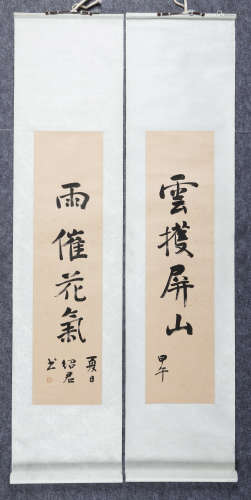 雲擭屏山
甲午
雨催花氣
夏日
紹君
书